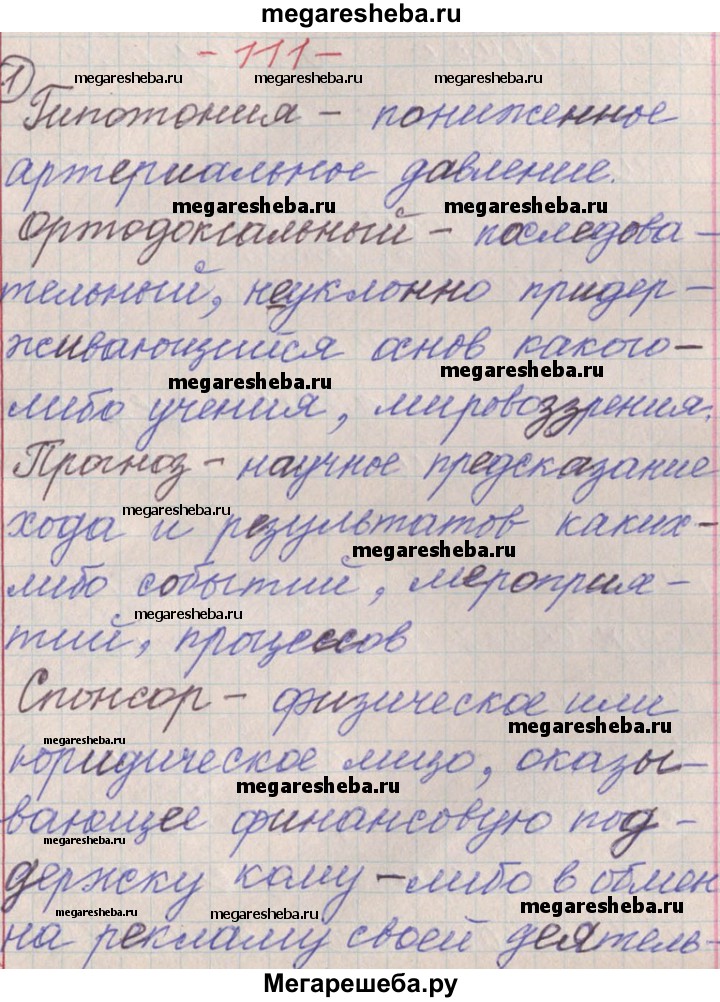 megaresheba.ru
- 111 -
megaresheba.ru megaresheba.ru megaresheba.ru
1
Гипотония - пониженное
артериальное давление.
megaresheba.ru megaresheba.ru
Ортодоксальный - последова-
тельный, неуклонно придер-
живающийся основ какого-
megaresheba.ru megaresheba.ru
либо учения, мировоззрения.
Прогноз - научное предсказание
megaresheba.ru
хода и результатов каких-
megaresheba.ru
либо событий, мероприя-
megaresheba.ru
тий, процессов
Спонсор - физическое или
megaresheba.ru megaresheba.ru
юридическое лицо, оказы-
megaresheba.ru
вающее финансовую под-
megaresheba.ru
держку кому-либо в обмен
megaresheba.ru megaresheba.ru megaresheba.ru
на рекламу своей деятель-
Мегарешеба.ру